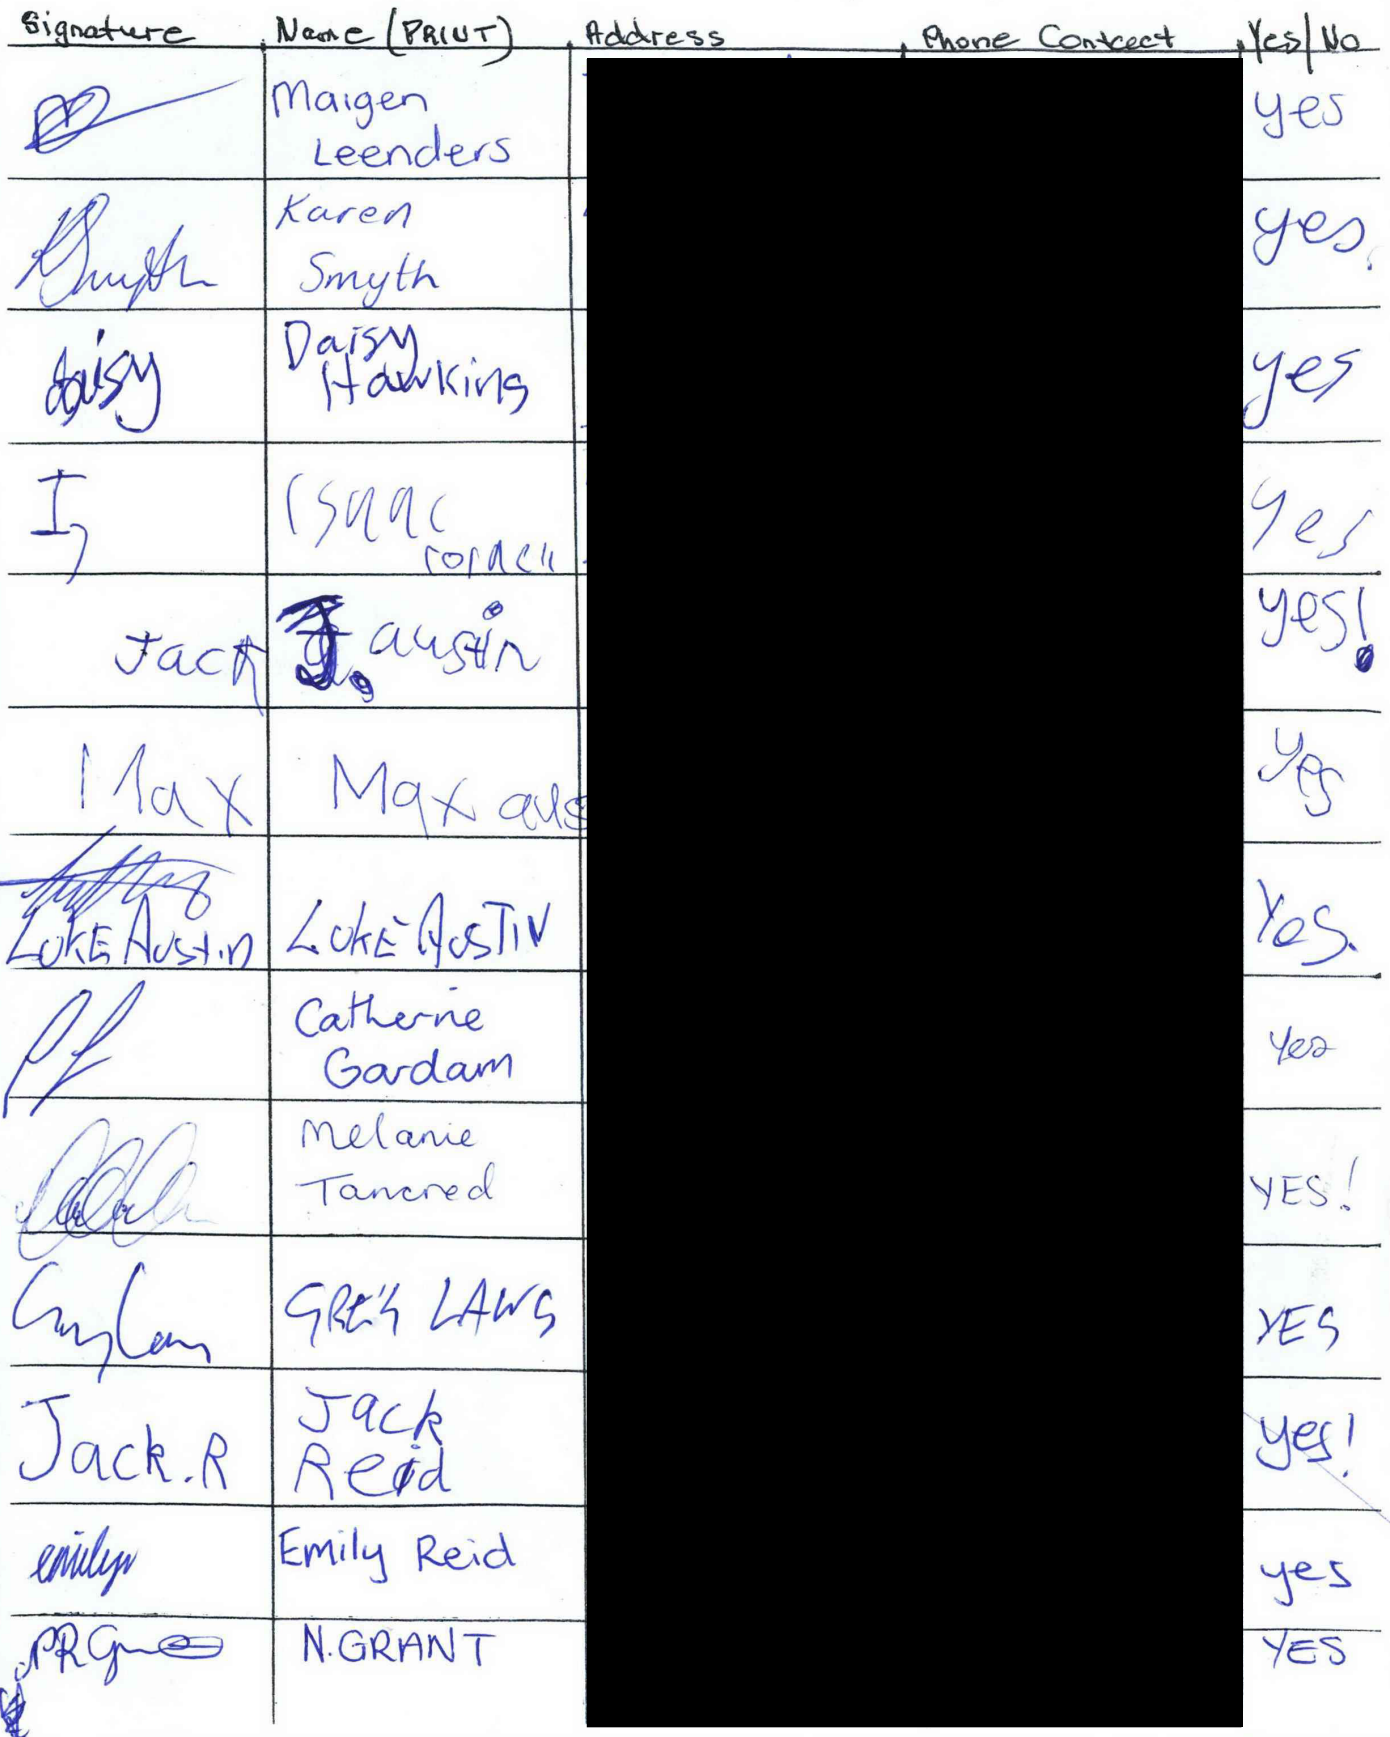 Signature Name (PRINT) Address Phone Contact Yes/No
Maigen yes
Leenders
Karen yes.
Smyth
Daisy yes
daisy Hawkins
I Isaac Yes
Jack J. austin yes!
Max Max aus Yes
LUKE AUSTIN LUKE AUSTIN Yes.
Catherine Yes
Gardam
Melanie YES!
Tancred
GREG LAWS YES
Jack yes!
Jack.R Reid
emily Emily Reid yes
N.GRANT YES